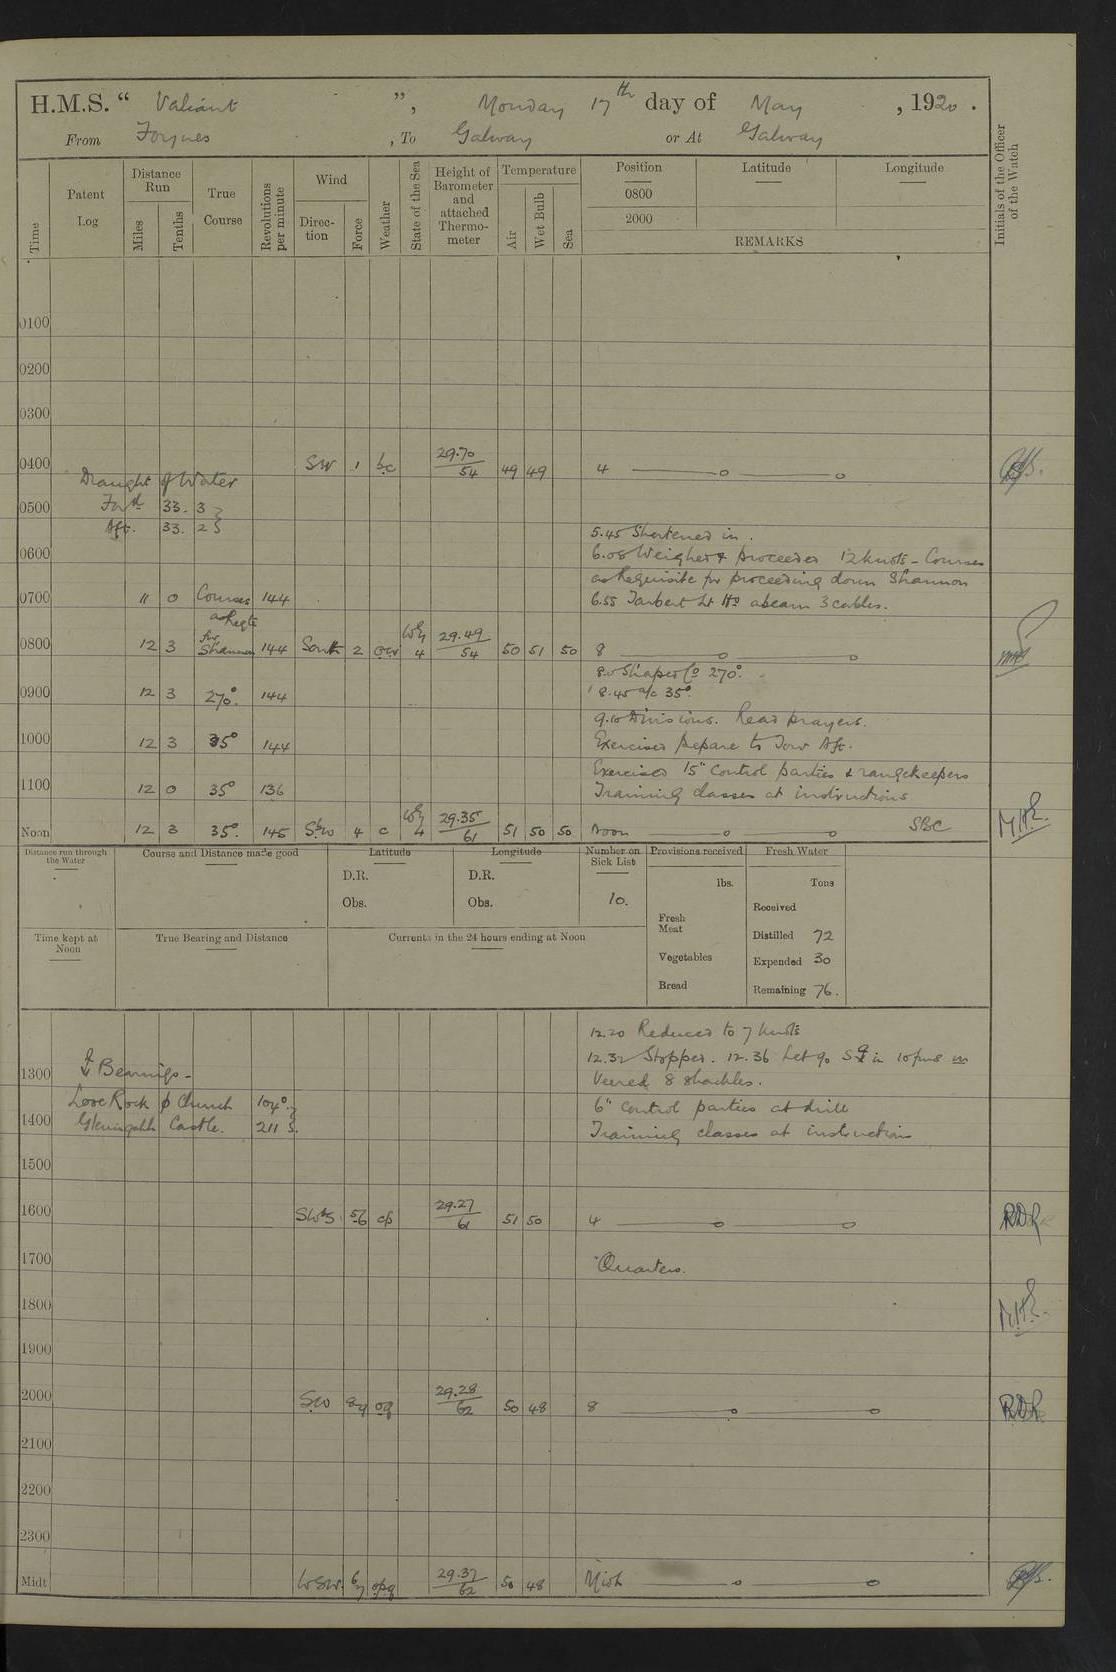 H.M.S. " Valiant ", Monday 17th day of May, 1920.
From Foynes, To Galway or At Galway
Time
Patent Log
Distance Run
Miles
Tenths
True Course
Revolutions per minute
Wind
Direc-tion
Force
Weather
State of the Sea
Height of Barometer and attached Thermo-meter
Temperature
Air
Wet Bulb
Sea
Position
Latitude
Longitude
0800
2000
REMARKS
Initials of the Officer of the Watch
0100
0200
0300
0400 SW 1 bc 29.70/54 49 49 4
Draught of Water
0500 Ford 33. 3
Aft. 33. 2
5.45 Shortened in.
0600 6.08 Weighed & proceeded 12 knots - Courses
as requisite for proceeding down Shannon
0700 11 0 Courses 144 6.55 Tarbert Lt Ho abeam 3 cables.
as Reqte
0800 12 3 for Shannon 144 South 2 4 29.49/54 50 51 50 8
8.0 Shaped Co 270°.
0900 12 3 270°. 144 8.45 a/c 35°.
9.10 Divisions. Read prayers.
1000 12 3 35° 144 Exercised prepare to Tow Aft.
Exercised 15" control parties & rangekeepers
1100 12 0 35° 136 Training classes at instructions
Noon 12 3 35°. 145 SbW 4 c 4 29.35/61 51 50 50 Noon SBC
Distance run through the Water
Course and Distance made good
Latitude
Longitude
Number on Sick List
Provisions received
Fresh Water
D.R.
D.R.
lbs.
Tons
Obs.
Obs.
10.
Received
Fresh Meat
Time kept at Noon
True Bearing and Distance
Currents in the 24 hours ending at Noon
Distilled 72
Vegetables
Expended 30
Bread
Remaining 76.
12.20 Reduced to 7 knots
12.32 Stopped. 12.36 Let go in 10 fms
1300 Bearings - Veered 8 shackles.
Church 104° 6" control parties at drill
1400 Castle. 211 Training classes at instruction
1500
1600 SWbS 5/6 cp 29.27/61 51 50 4
1700 Quarters.
1800
1900
2000 SW oq 29.28/62 50 48 8
2100
2200
2300
Midt WSW. 6/7 opq 29.37/62 50 48 Midt